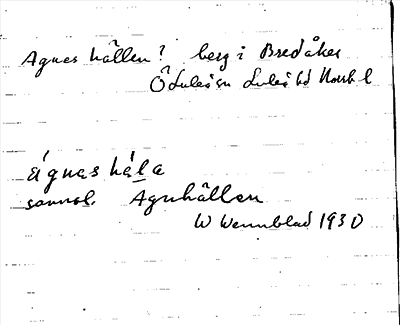 Agnes hällen? berg i Bredåker
Öuleåsn Luleå hd Norrb l
ágnas hála
sannol. Agnhällen
W Wennblad 1930